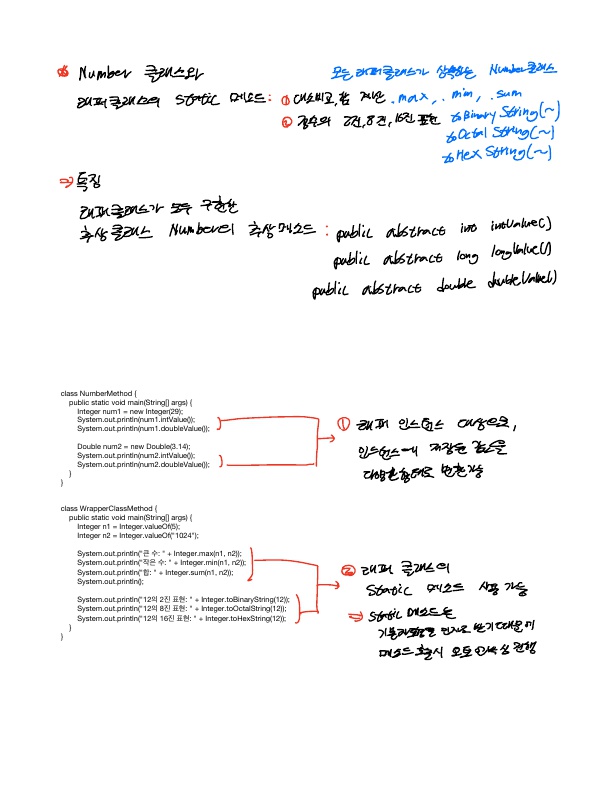 Number 클래스와
모든 래퍼클래스가 상속하는 Number클래스
래퍼클래스의 static 메소드: ① 대소비교, 합 계산 .max, .min, .sum
② 정수의 2진, 8진, 16진 표현 toBinaryString(~)
toOctalString(~)
toHexString(~)
⇒ 특징
래퍼클래스가 모두 구현한
추상클래스 Number의 추상메소드 : public abstract int intValue()
public abstract long longValue()
public abstract double doubleValue()
class NumberMethod {
public static void main(String[] args) {
Integer num1 = new Integer(29);
System.out.println(num1.intValue());
System.out.println(num1.doubleValue());
Double num2 = new Double(3.14);
System.out.println(num2.intValue());
System.out.println(num2.doubleValue());
}
}
① 래퍼 인스턴스 대상으로,
인스턴스에 저장된 값을
다양한 형태로 반환가능
class WrapperClassMethod {
public static void main(String[] args) {
Integer n1 = Integer.valueOf(5);
Integer n2 = Integer.valueOf("1024");
System.out.println("큰 수: " + Integer.max(n1, n2));
System.out.println("작은 수: " + Integer.min(n1, n2));
System.out.println("합: " + Integer.sum(n1, n2));
System.out.println();
System.out.println("12의 2진 표현: " + Integer.toBinaryString(12));
System.out.println("12의 8진 표현: " + Integer.toOctalString(12));
System.out.println("12의 16진 표현: " + Integer.toHexString(12));
}
}
② 래퍼 클래스의
static 메소드 사용 가능
⇒ static 메소드는
기본자료형을 인자로 받기 때문에
메소드 호출시 오토 언박싱 진행